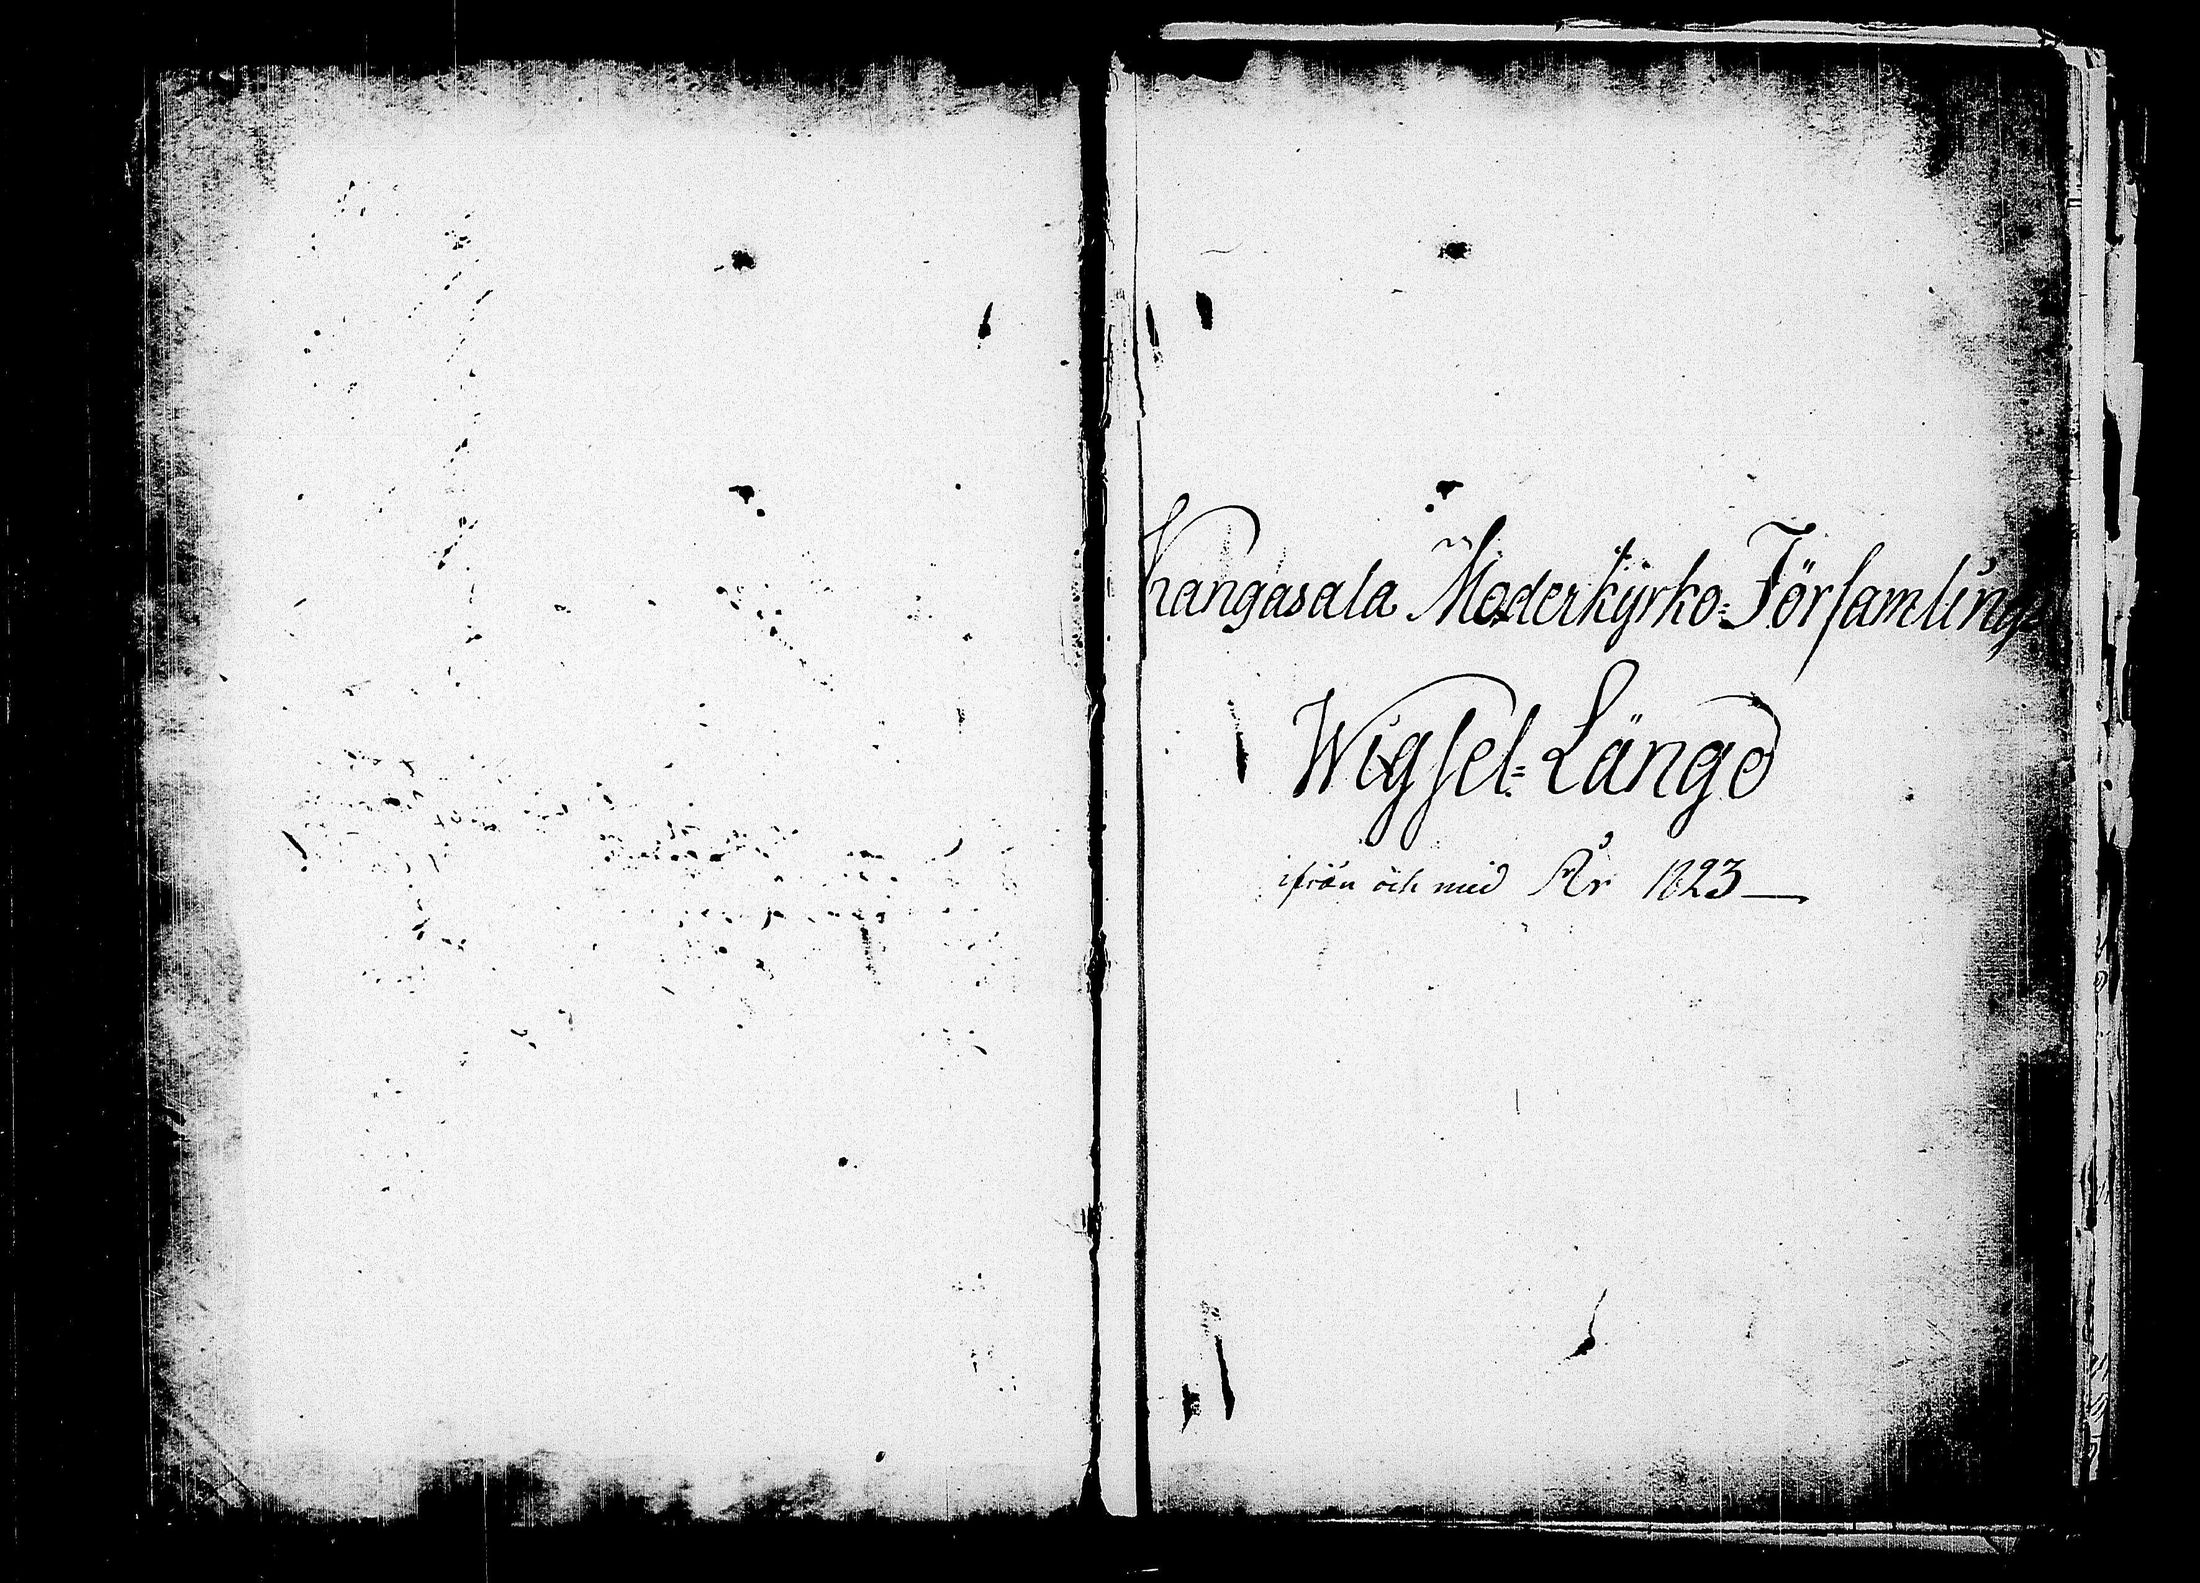 Kangasala Moderkyrko=Församlings
Wigsel=Längd
ifrån och med År 1823